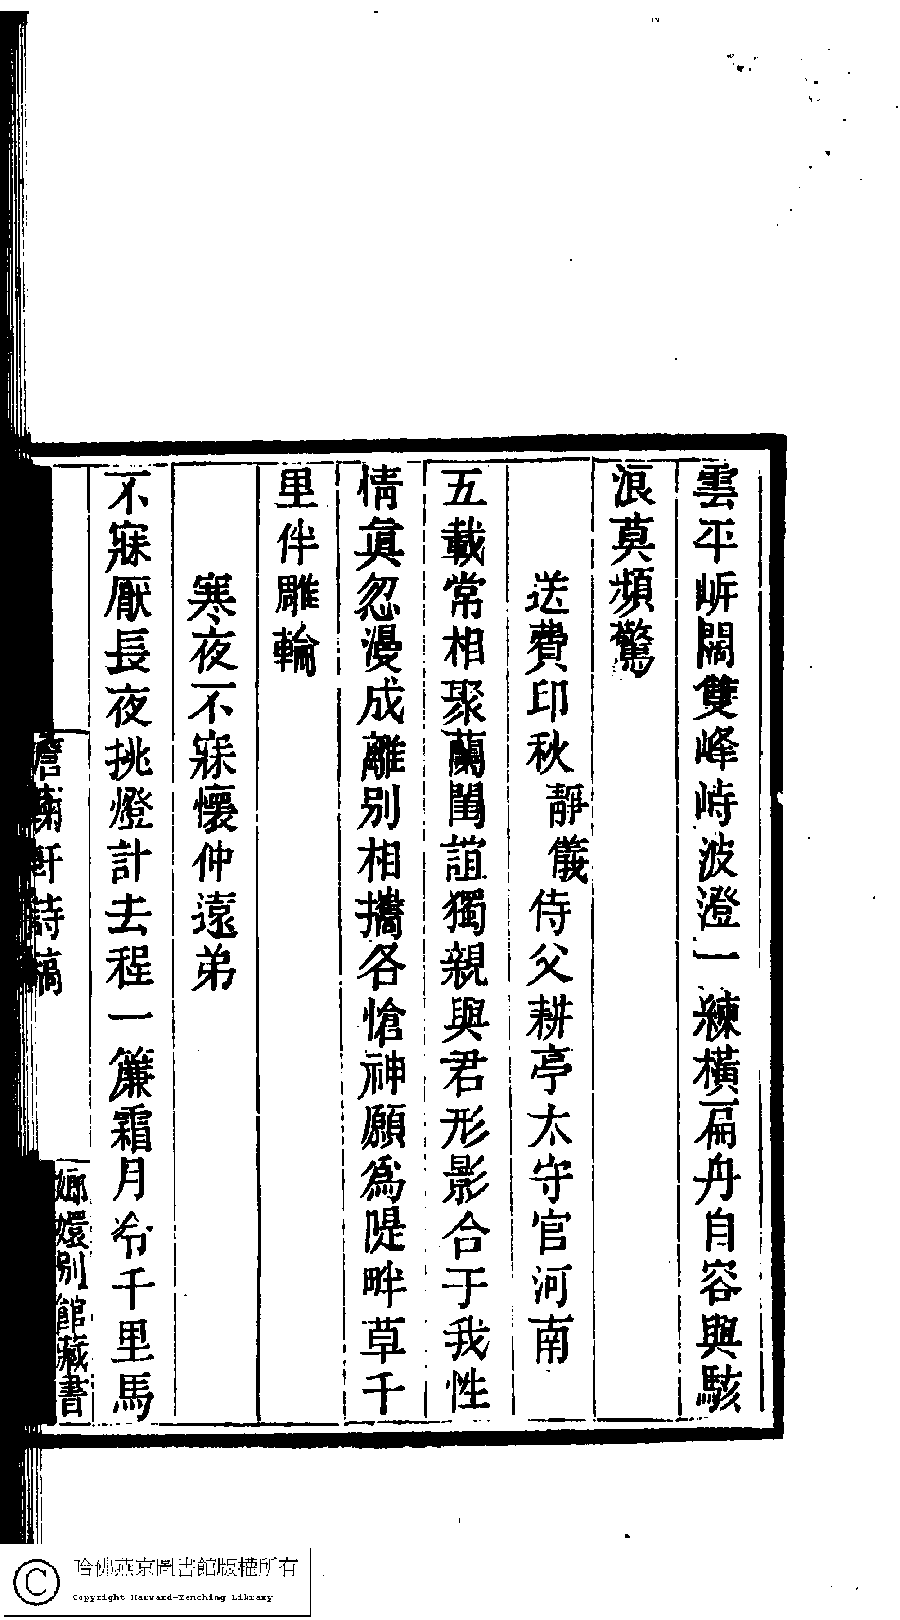 雲平㟁闊雙峰峙波澄一練橫扁舟自容與駭
浪莫頻驚
送費印秋靜儀侍父耕亭太守官河南
五載常相聚蘭閨誼獨親與君形影合于我性
情眞忽漫成離別相攜各愴神願爲隄畔草千
里伴雕輪
寒夜不寐懷仲遠弟
不寐厭長夜挑燈計去程一簾霜月冷千里馬
澹菊軒詩稿
嫏嬛別館藏書
哈佛燕京圖書館版權所有
Copyright Harvard-Yenching Library